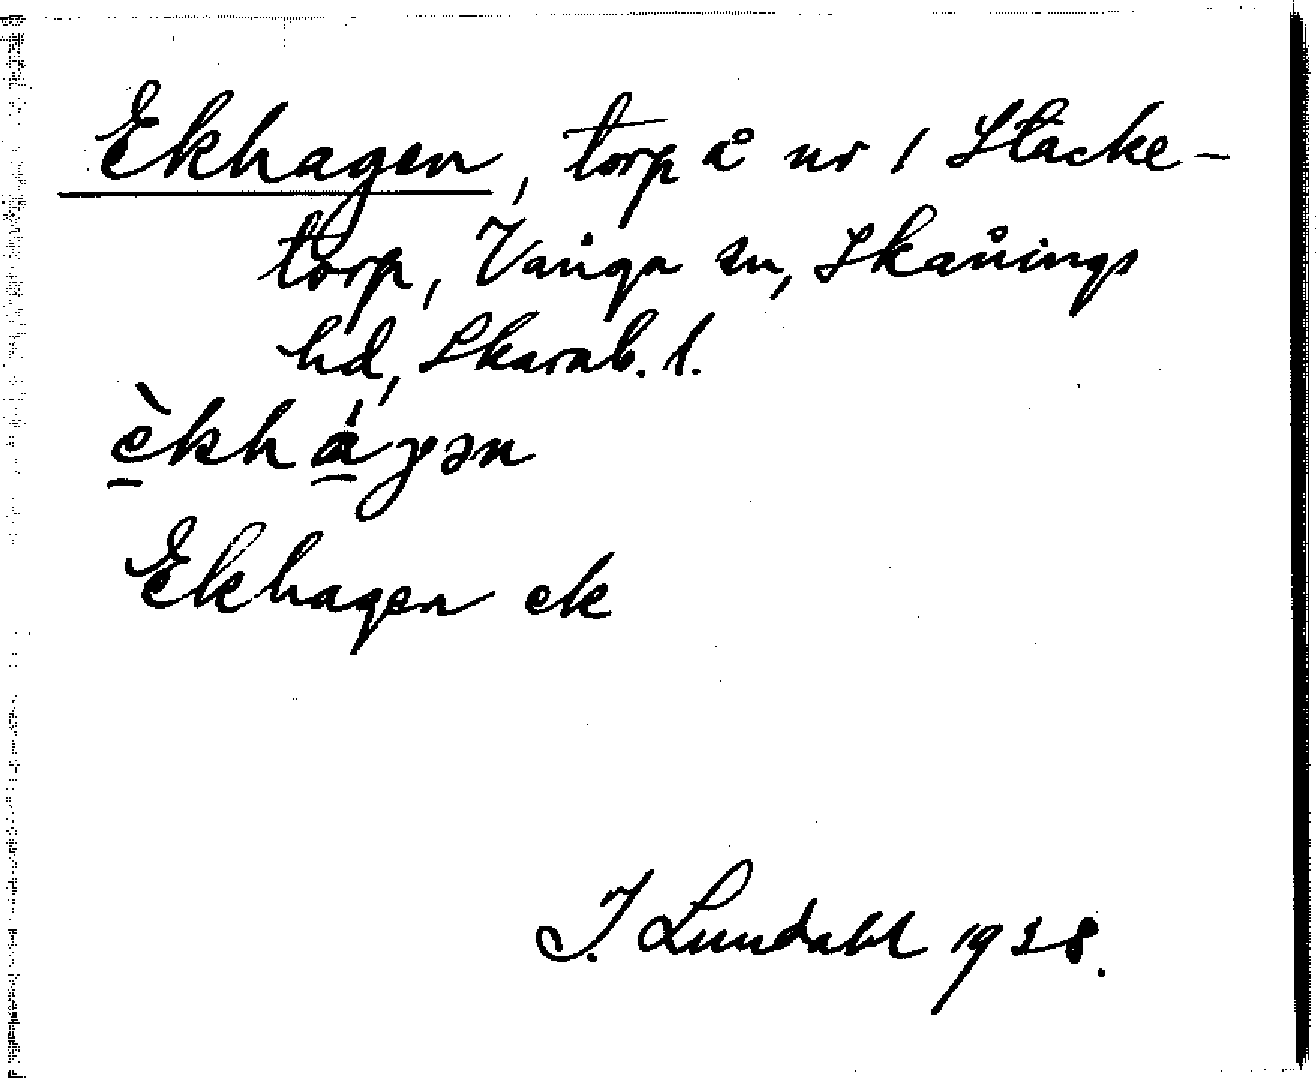 Ekhagen, torp å nr 1 Stacke-
torp, Vånga sn, Skånings
hd, Skarab. l.
èkhá̱gən
Ekhagen ek
I. Lundahl 1928.